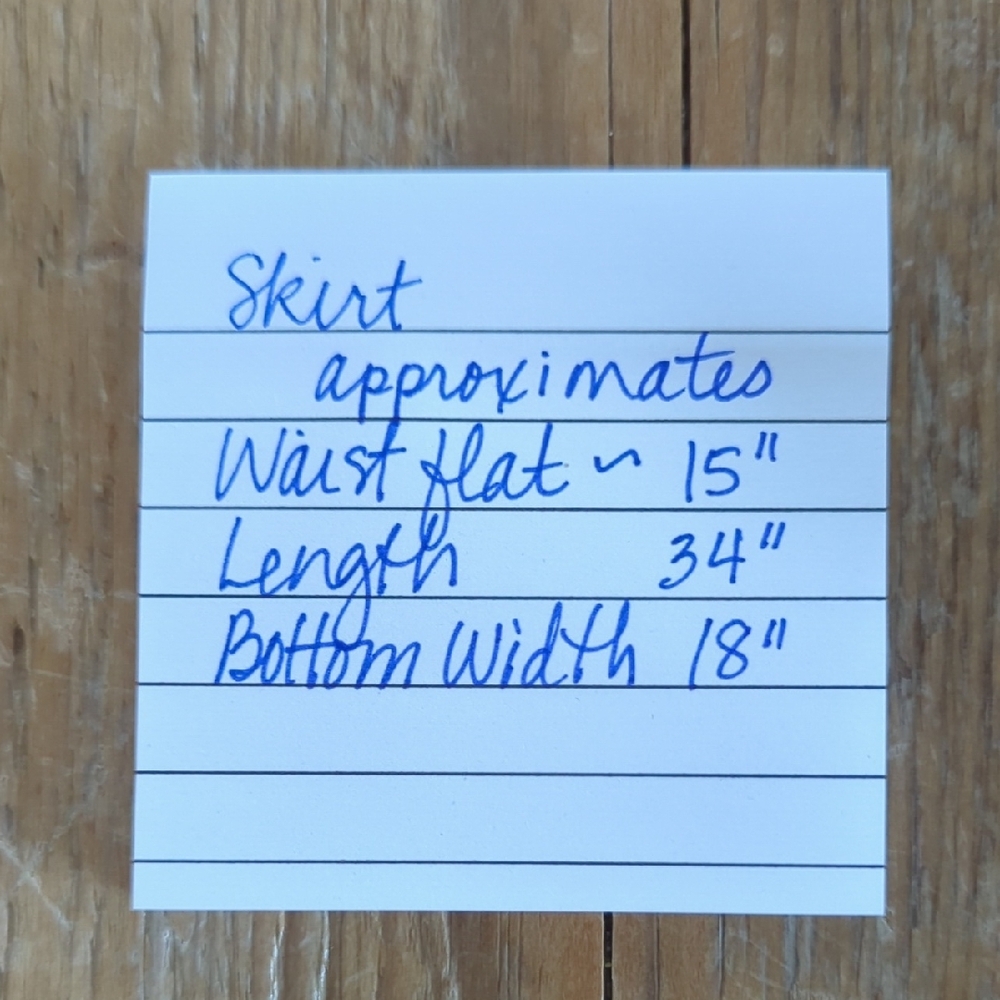 Skirt
approximates
Waist flat ~ 15"
Length 34"
Bottom Width 18"